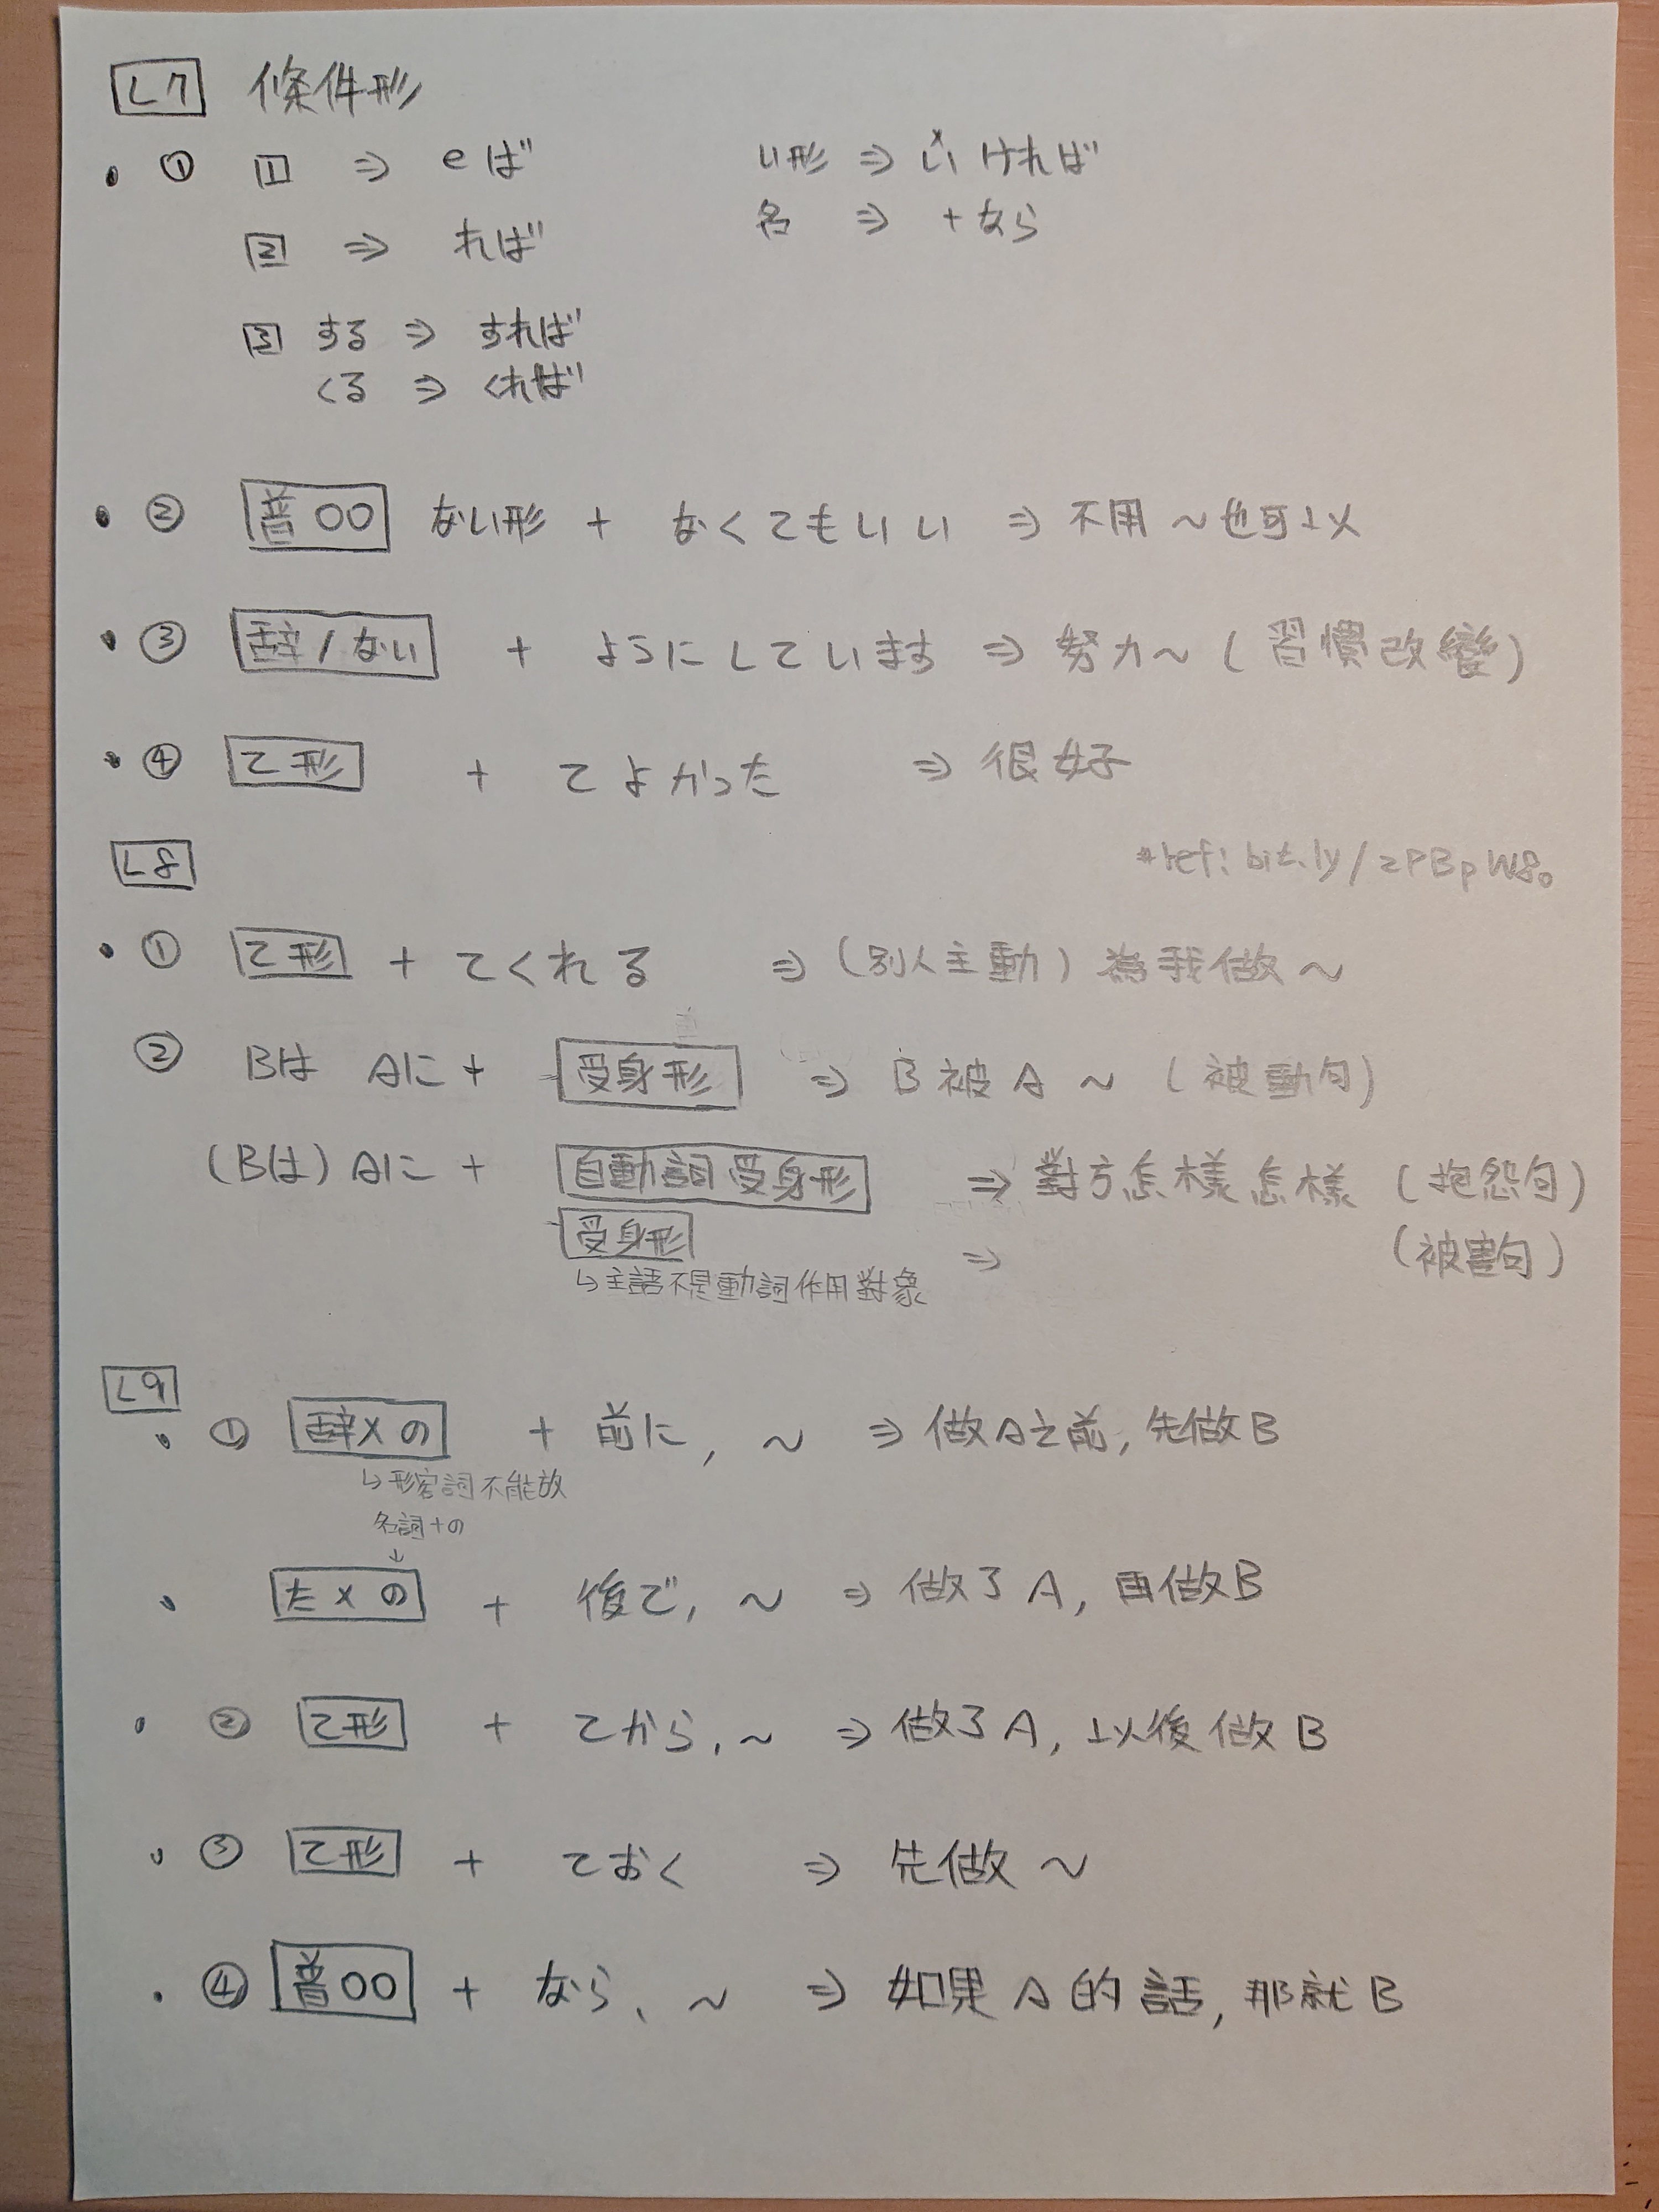 L7 條件形
・① 1 ⇒ eば い形 ⇒ いければ
2 ⇒ れば 名 ⇒ +なら
3 する ⇒ すれば
くる ⇒ くれば
・② 普〇〇 ない形 + なくてもいい ⇒ 不用～也可以
・③ 辞/ない + ようにしています ⇒ 努力～(習慣改變)
・④ て形 + てよかった ⇒ 很好
L8
*ref: bit.ly/2PBpW8o
・① て形 + てくれる ⇒ (別人主動)為我做～
② Bは Aに + 受身形 ⇒ B被A～(被動句)
(Bは) Aに + 自動詞受身形 ⇒ 對方怎樣怎樣 (抱怨句)
受身形 ⇒ (被害句)
↳主語不是動詞作用對象
L9
・① 辞×の + 前に, ～ ⇒ 做A之前, 先做B
↳形容詞不能放
名詞+の
↓
・ た×の + 後で, ～ ⇒ 做了A, 再做B
・② て形 + てから, ～ ⇒ 做了A, 以後做B
・③ て形 + ておく ⇒ 先做～
・④ 普〇〇 + なら、～ ⇒ 如果A的話, 那就B